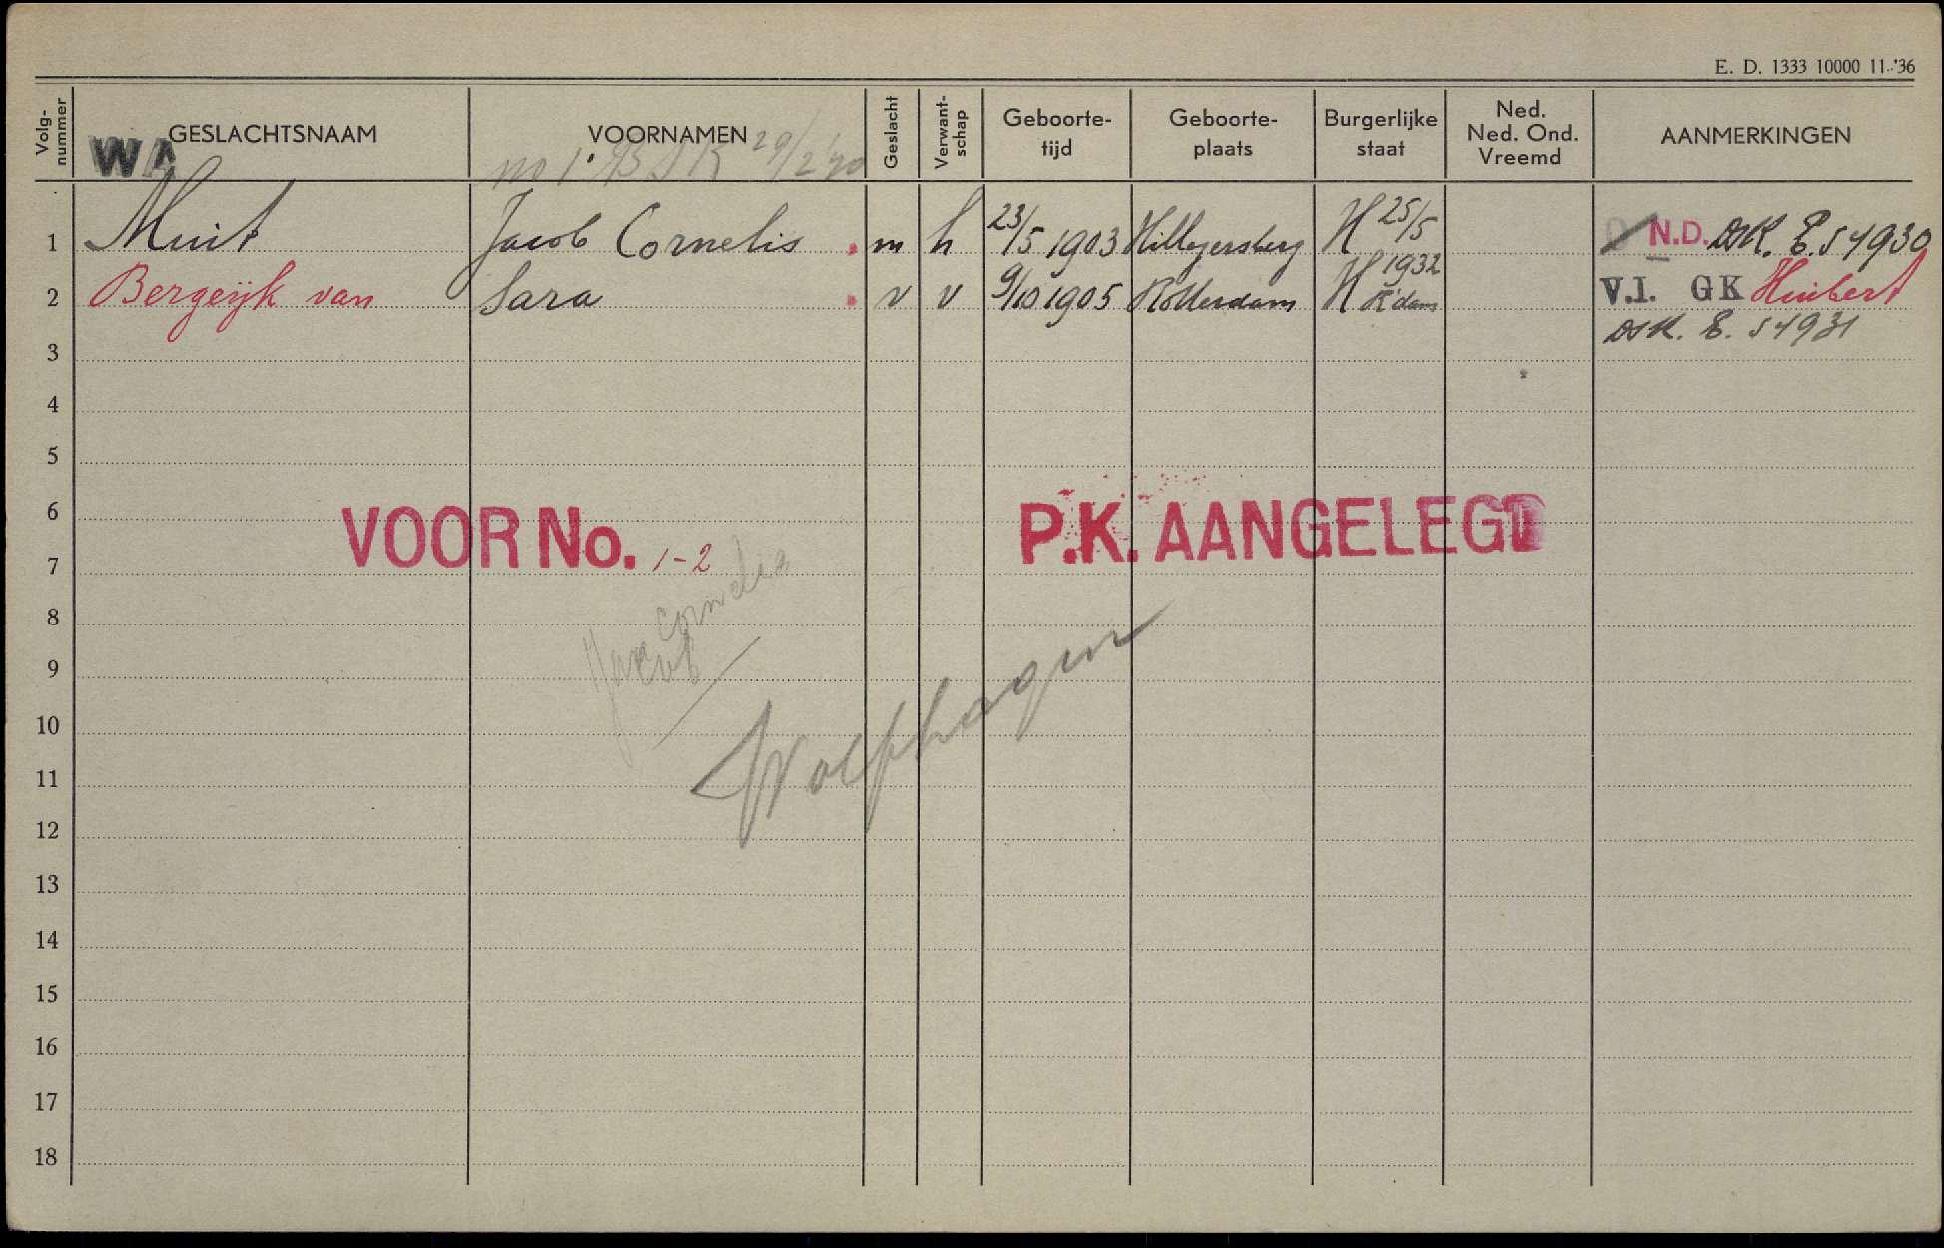 E. D. 1333 10000 11.-'36
Volg-
nummer
GESLACHTSNAAM
VOORNAMEN
Geslacht
Verwant-
schap
Geboorte-
tijd
Geboorte-
plaats
Burgerlijke
staat
Ned.
Ned. Ond.
Vreemd
AANMERKINGEN
WA
no 1. 29/2 '40
1 Muit Jacob Cornelis . m h 23/5 1903 Hillegersberg H 25/5 N.D. DSK. E. 54930
1932
2 Bergeijk van Sara . v v 9/10 1905 Rotterdam H R'dam V.I. GK Huibert
DSK. E. 54931
3
4
5
6
VOOR No. 1-2 P.K. AANGELEGD
7
Jacob Cornelis
8
9
10
Wolphagen
11
12
13
14
15
16
17
18